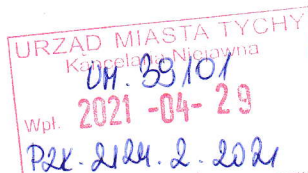 URZĄD MIASTA TYCHY
Kancelaria Niejawna
UM. 39101
Wpł. 2021 -04- 29
PZK. 2124. 2. 2021